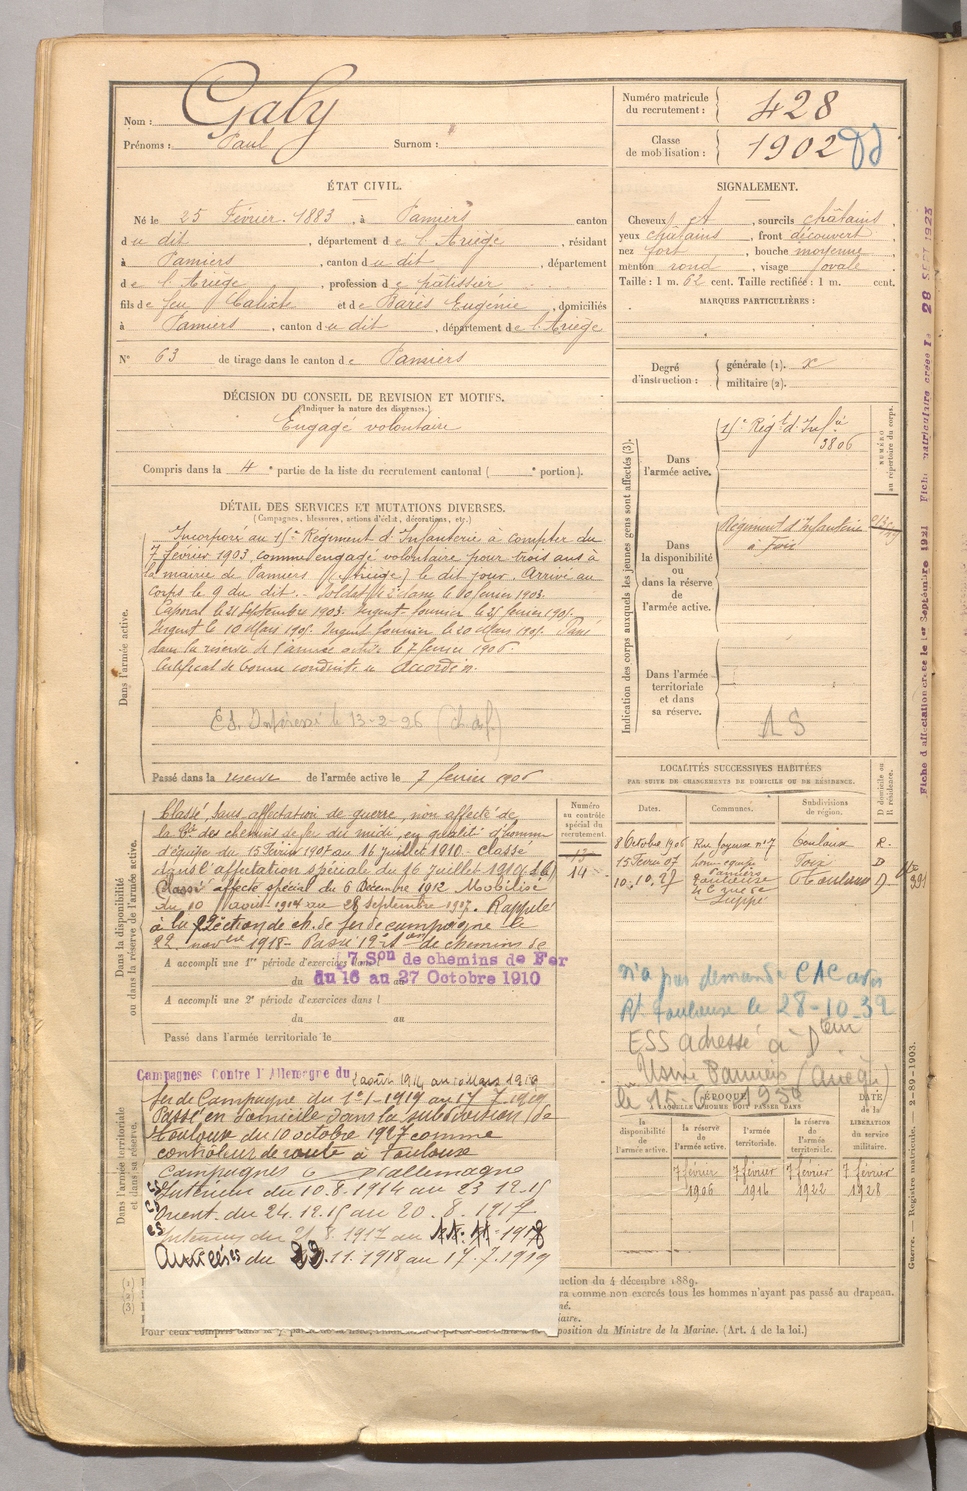 Nom : Galy
Prénoms : Paul Surnom : "
Numéro matricule du recrutement : 428
Classe de mobilisation : 1902
ÉTAT CIVIL.
Né le 25 Février 1883, à Pamiers canton
du dit, département de l'Ariège, résidant
à Pamiers, canton du dit, département
de l'Ariège, profession de pâtissier
fils de feu Calixte et de Paris Eugénie, domiciliés
à Pamiers, canton du dit, département de l'Ariège
N° 63 de tirage dans le canton de Pamiers
SIGNALEMENT.
Cheveux et, sourcils châtains
yeux châtains, front découvert
nez fort, bouche moyenne
menton rond, visage ovale
Taille : 1 m. 62 cent. Taille rectifiée : 1 m. cent.
MARQUES PARTICULIÈRES :
Degré d'instruction : générale (1). x
militaire (2).
DÉCISION DU CONSEIL DE REVISION ET MOTIFS.
(Indiquer la nature des dispenses.)
Engagé volontaire
Compris dans la 4e partie de la liste du recrutement cantonal ( e portion).
DÉTAIL DES SERVICES ET MUTATIONS DIVERSES.
(Campagnes, blessures, actions d'éclat, décorations, etc.)
Dans l'armée active.
Incorporé au Régiment d'Infanterie à compter du
7 février 1903, comme engagé volontaire pour trois ans à
la mairie de Pamiers (Ariège) le dit jour. Arrivé au
corps le 9 du dit. Soldat de 2e classe le février 1903.
Caporal le 21 Septembre 1903. Sergent fourrier le février
Sergent le 10 Mars Sergent fourrier le 20 Mars Passé
dans la réserve de l'armée active le 7 février 1906.
Certificat de bonne conduite accordé
le 13-2-26
Passé dans la réserve de l'armée active le 7 février 1906
Indication des corps auxquels les jeunes gens sont affectés (3).
NUMÉRO au répertoire du corps.
Dans l'armée active.
Régt d'Infie
3806
Dans la disponibilité ou dans la réserve de l'armée active.
Régiment d'Infanterie
à Foix
Dans l'armée territoriale et dans sa réserve.
AS
LOCALITÉS SUCCESSIVES HABITÉES
PAR SUITE DE CHANGEMENTS DE DOMICILE OU DE RÉSIDENCE.
Dates. Communes. Subdivisions de région. D domicile ou R résidence.
8 Octobre 1906 Rue Joyeuse n° 7 Toulouse R.
15 Févr 07 Pamiers Foix D
10.10.27 Toulouse D
Dans la disponibilité ou dans la réserve de l'armée active.
Numéro au contrôle spécial du recrutement.
13
14
Classé, sans affectation de guerre, non affecté de
la Cie des chemins de fer du midi, en qualité d'homme
d'équipe du 15 Février 1907 au 16 juillet 1910. Classé
dans l'affectation spéciale du 16 Juillet 1910
Classé affecté spécial du 6 Décembre 1912 Mobilisé
du 10 août 1914 au 28 Septembre 1917. Rappelé
à la Section de ch. de fer de campagne le
22 novbre 1918 - Passé de chemins de
A accompli une 1re période d'exercices dans 7 Son de chemins de Fer
du 16 au 27 Octobre 1910
A accompli une 2e période d'exercices dans l
du au
Passé dans l'armée territoriale le
n'a pas demandé CAC
Rt Toulouse le 28-10-32
ESS adressé à Dem
Usine Pamiers (Ariège)
le 15-6-
Dans l'armée territoriale et dans sa réserve.
Campagnes Contre l'Allemagne du août 1914 au 10 Mars 1919
fer de Campagne du 1er-1-1919 au 17 7 1919
Passé en domicile dans la subdivision de
Toulouse du 10 octobre 1927 comme
contrôleur de route à Toulouse
Campagnes c l'allemagne
Intérieur du 10.8.1914 au 23 12.15
Orient du 24.12.15 au 20.8.1917
Intérieur du 21.8.1917 au 1918
Armées du 23.11.1918 au 17.7.1919
ÉPOQUE
À LAQUELLE L'HOMME DOIT PASSER DANS
DATE de la
la disponibilité de l'armée active. la réserve de l'armée active. l'armée territoriale. la réserve de l'armée territoriale. LIBÉRATION du service militaire.
7 février 1906 7 février 1916 7 février 1922 7 février 1928
(1)
(2)
(3)
uction du 4 décembre 1889.
ra comme non exercés tous les hommes n'ayant pas passé au drapeau.
position du Ministre de la Marine. (Art. 4 de la loi.)
Guerre. — Registre matricule. — 3-89-1903.
Fiche d'affectation créée le 1er Septembre 1921 Fiche matriculaire créée le 28 SEPT 1923